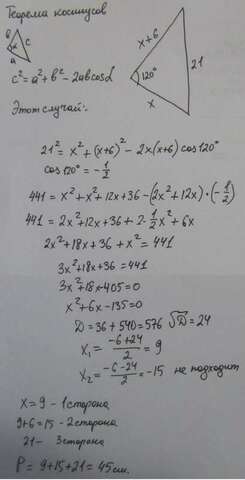 Теорема косинусов
в c
α
a
c² = a² + в² - 2ab cosα
x+6
21
120°
x
Этот случай:.
21² = x² + (x+6)² - 2x(x+6) cos120°
cos120° = -1/2
441 = x² + x² + 12x + 36 - (2x² + 12x)·(-1/2)
441 = 2x² + 12x + 36 + 2·1/2 x² + 6x
2x² + 18x + 36 + x² = 441
3x² + 18x + 36 = 441
3x² + 18x - 405 = 0
x² + 6x - 135 = 0
D = 36 + 540 = 576 √D = 24
x₁ = (-6+24)/2 = 9
x₂ = (-6-24)/2 = -15 не подходит
x = 9 - 1 сторона
9+6=15 - 2 сторона
21 - 3 сторона
P = 9+15+21 = 45 см.